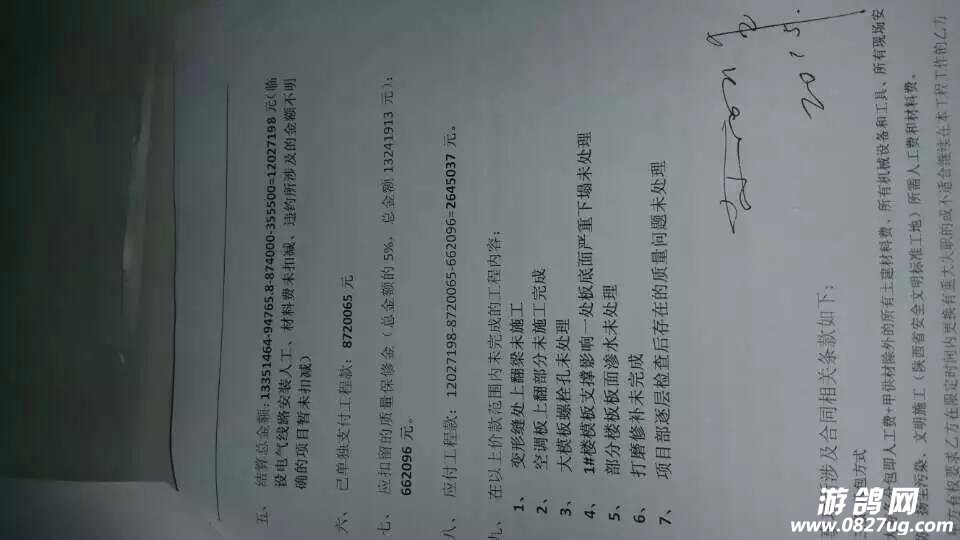 五、 结算总金额:13351464-94765.8-874000-355500=12027198 元(临
设电气线路安装人工、材料费未扣减、违约所涉及的金额不明
确的项目暂未扣减)
六、 已单独支付工程款: 8720065 元
七、 应扣留的质量保修金(总金额的 5%, 总金额 13241913 元):
662096 元。
八、 应付工程款: 12027198-8720065-662096=2645037 元。
九、 在以上价款范围内未完成的工程内容:
1、 变形缝处上翻梁未施工
2、 空调板上翻部分未施工完成
3、 大模板螺栓孔未处理
4、 1#楼模板支撑影响一处板底面严重下塌未处理
5、 部分楼板板面渗水未处理
6、 打磨修补未完成
7、 项目部逐层检查后存在的质量问题未处理
2015.
涉及合同相关条款如下:
包方式
包即人工费+甲供材除外的所有主建材料费、所有机械设备和工具、所有现场安
扬尘污染、文明施工(陕西省安全文明标准工地)所需人工费和材料费。
甲方有权要求乙方在限定时间内更换有重大失职的或不适合继续在本工程工作的乙方
游鸽网
www.0827ug.com